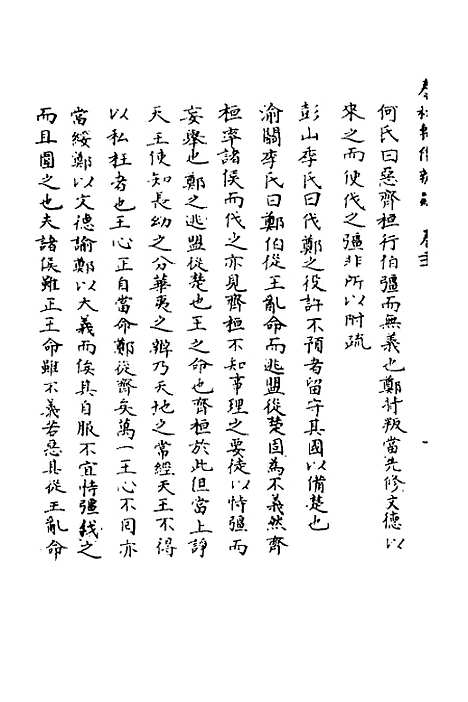 春秋輯傳辨疑 卷三 一
何氏曰惡齊桓行伯彊而無義也鄭背叛當先修文德以
來之而便伐之彊非所以附疏
彭山李氏曰伐鄭之役許不預者留守其國以備楚也
渝關李氏曰鄭伯從王亂命而逃盟從楚固為不義然齊
桓率諸侯而伐之亦見齊桓不知事理之要徒以恃彊而
妄舉也鄭之逃盟從楚也王之命也齊桓於此但當上諍
天王使知長幼之分華夷之辨乃天地之常經天王不得
以私枉者也王心正自當命鄭從齊矣萬一王心不回亦
當綏鄭以文德諭鄭以大義而俟其自服不宜恃彊
之
而且圍之也夫諸侯雖正王命雖不義若惡其從王亂命